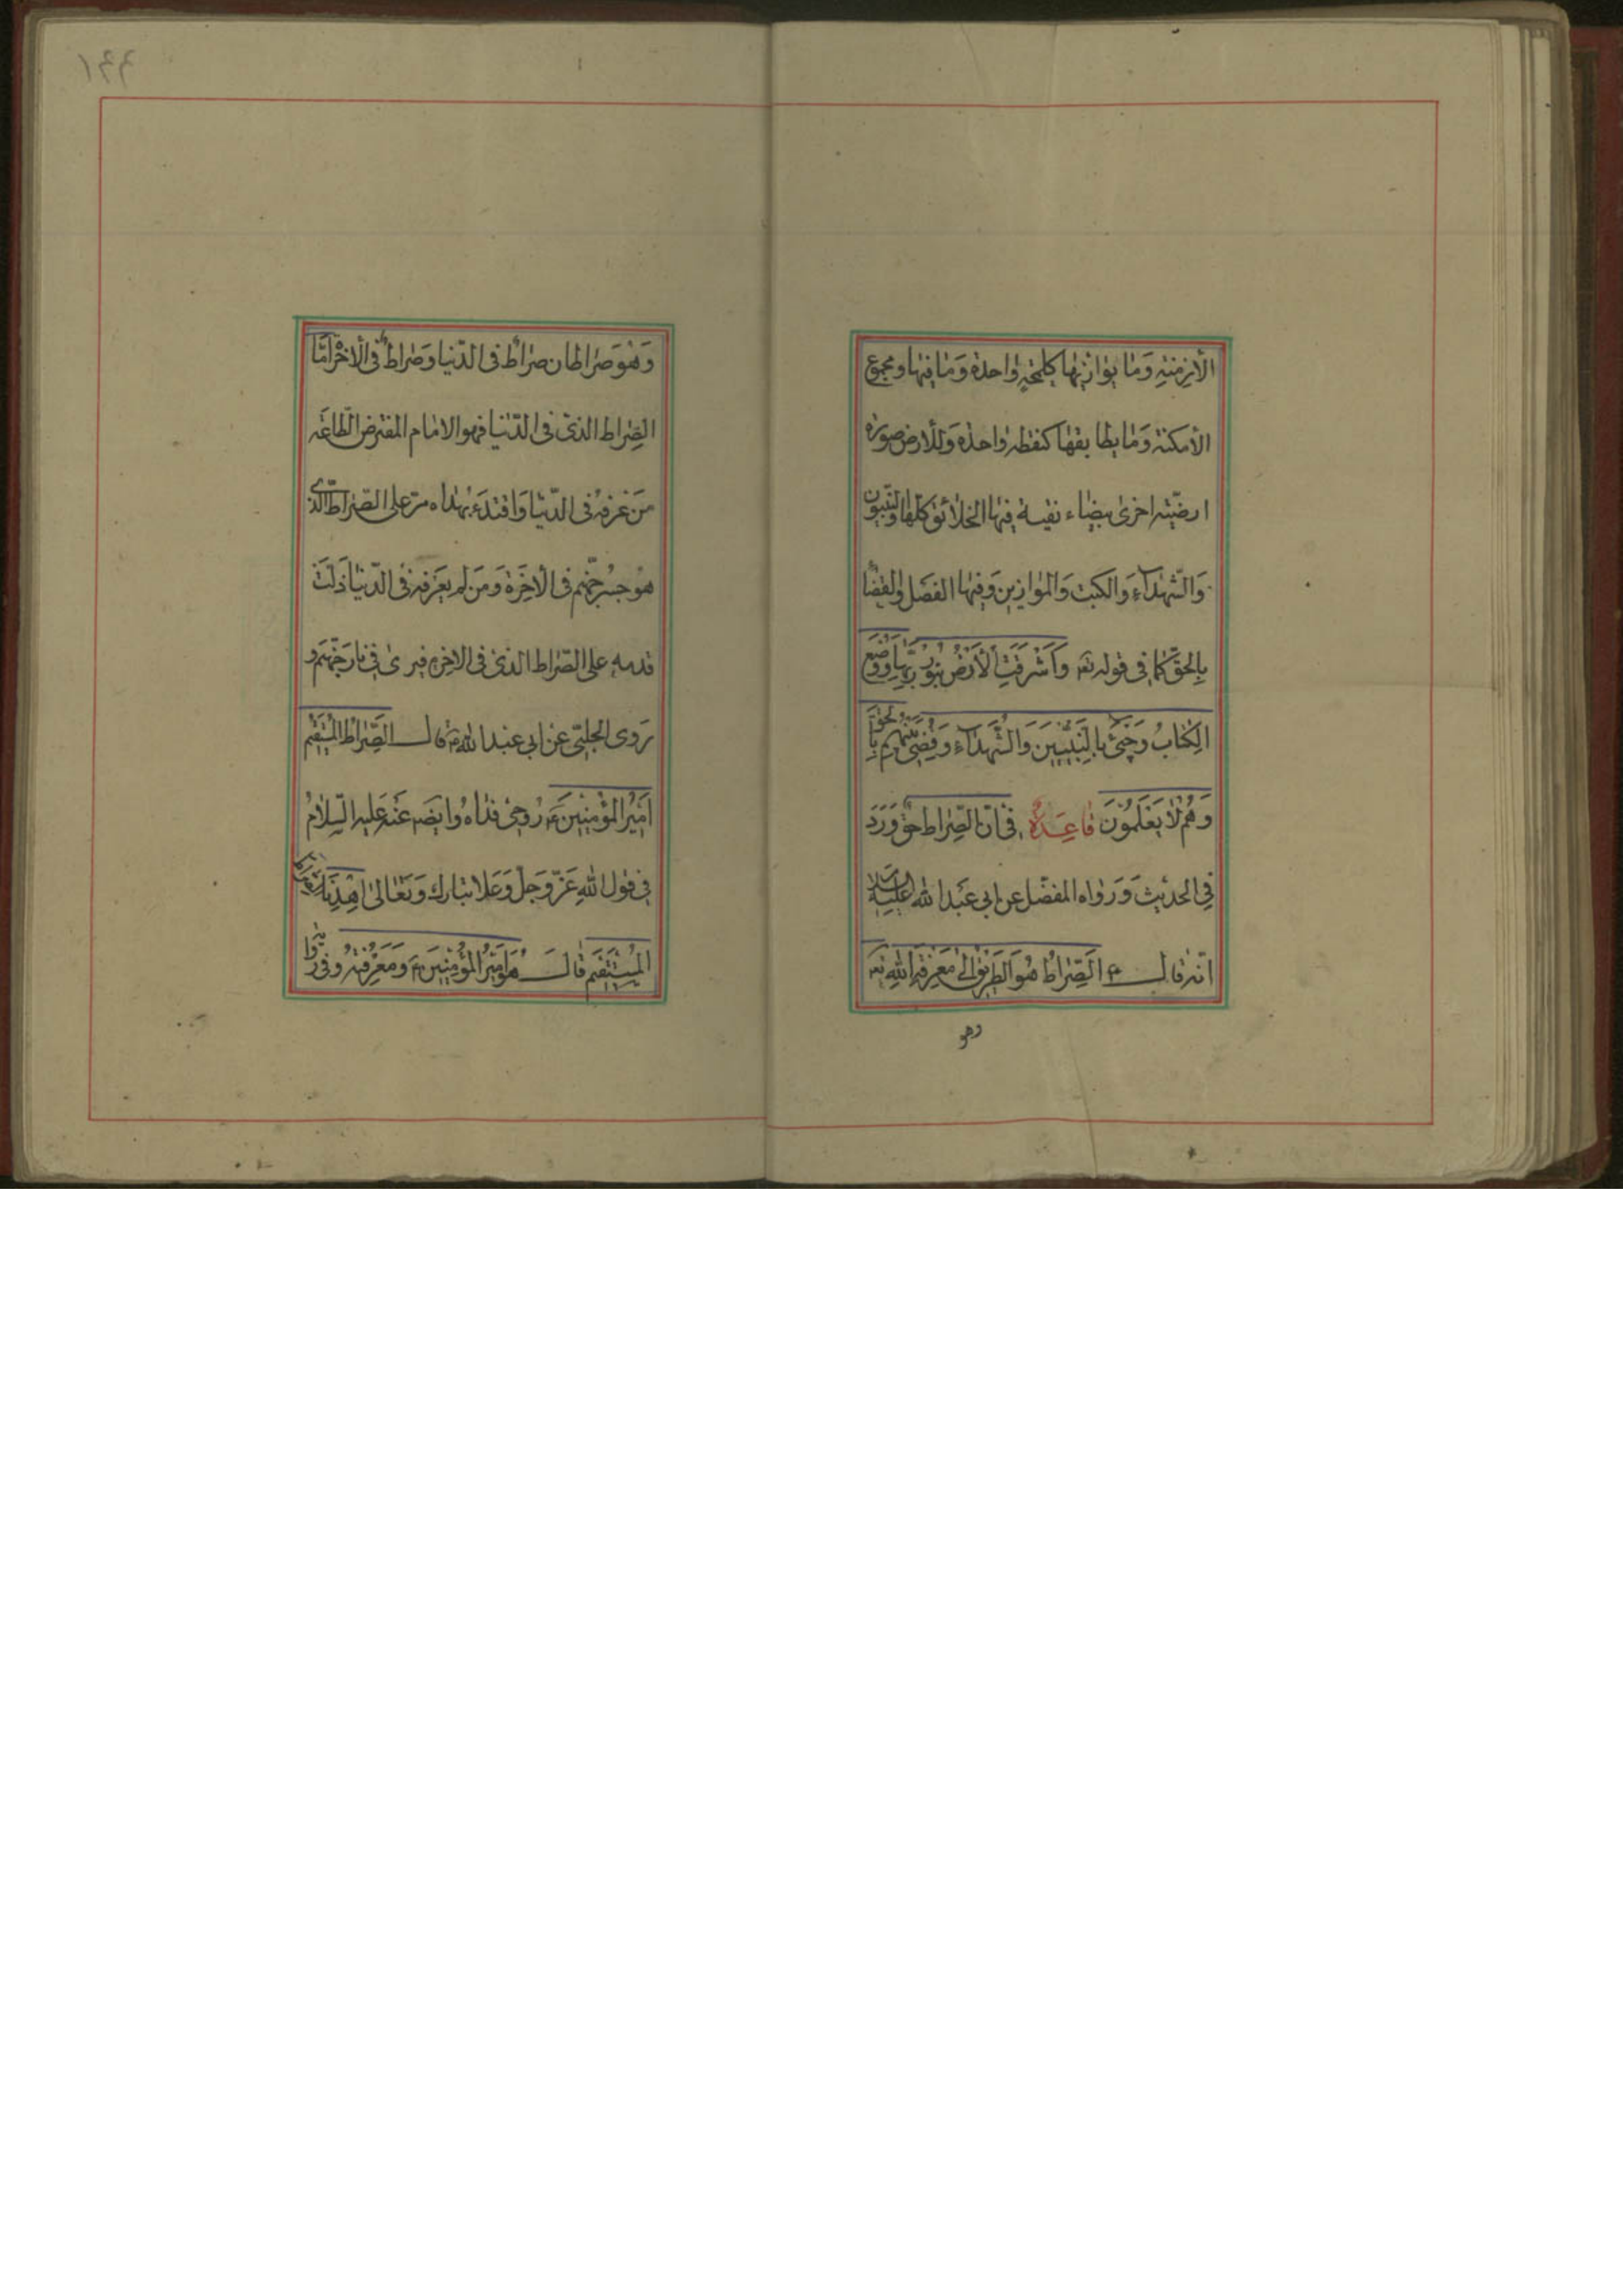 الأزمنته وَمٰا يوٰازيهٰا كلمحةٍ وٰاحدة وَمٰا فيهٰا ومجموع
الأمكنة وَمٰا يطابقهٰا كنقطه وٰاحدة وَللارض صورة
ارضيّته اخرىٰ بيضٰاء نقيسة فيهٰا الخلائق كلّهٰا والنّبيّون
وَالشّهدٰآء وَالكتب وَالموٰازين وَفيهٰا الفصَل وٰالقضٰا
بِالحَقّ كمٰا في قوله تعه وَاَشْرَقَتِ الأَرْضُ بِنُورِ رَبّهٰا وَوُضِعَ
الكِتٰابُ وَجيءَ بالنَّبِيّينَ وَالشُّهدٰآءِ وَقُضِىَ بَيْنَهُم بِالحَقِّ
وَهُمْ لٰا يَعْلَمُونَ قٰاعِدَةٌ في انّ الصِّرٰاط حقّ وَرَدَ
في الحديث وَرَوٰاه المفضّل عن ابي عَبدالله عليه السلام
انّه قال ع الَصِّرٰاطُ هُوَ الطَرِيقُ الىٰ مَعْرِفَةِ اللهِ تعه
وهو
٣٣١
وَهُوَ صرٰاطٰان صرٰاطٌ في الدّنيٰا وَصرٰاطٌ في الأخرة امّا
الصِّرٰاط الذى في الدّنيٰا فهو الامٰام المفترض الطّاعَة
مَن عَرفهُ في الدّنيٰا وَاقتدَىٰ بهدٰاه مرّ على الصّرٰاط الّذى
هو جسْر جهنّم في الأخِرَة وَمَن لم يعَرفه في الدّنيٰا زلّت
قدمه على الصّرٰاط الذى في الاخرة فيردىٰ في نٰار جَهنّم و
رَوى الحلبيّ عن ابي عبدالله ع قال الصِّرٰاطُ المُسْتَقيم
اَميُر المؤمِنينَ ع رُوحى فدٰاهُ وايضه عَنْهُ عَليه السّلامُ
في قول اللهِ عَزّ وَجلّ وَعلا تبارك وَتعٰالىٰ اِهْدِنَا الصِّرٰاطَ
المُسْتَقيَم قالَ هُوَ اميُر المُؤمِنينَ ع وَمَعْرِفتُهُ وفي روٰاية